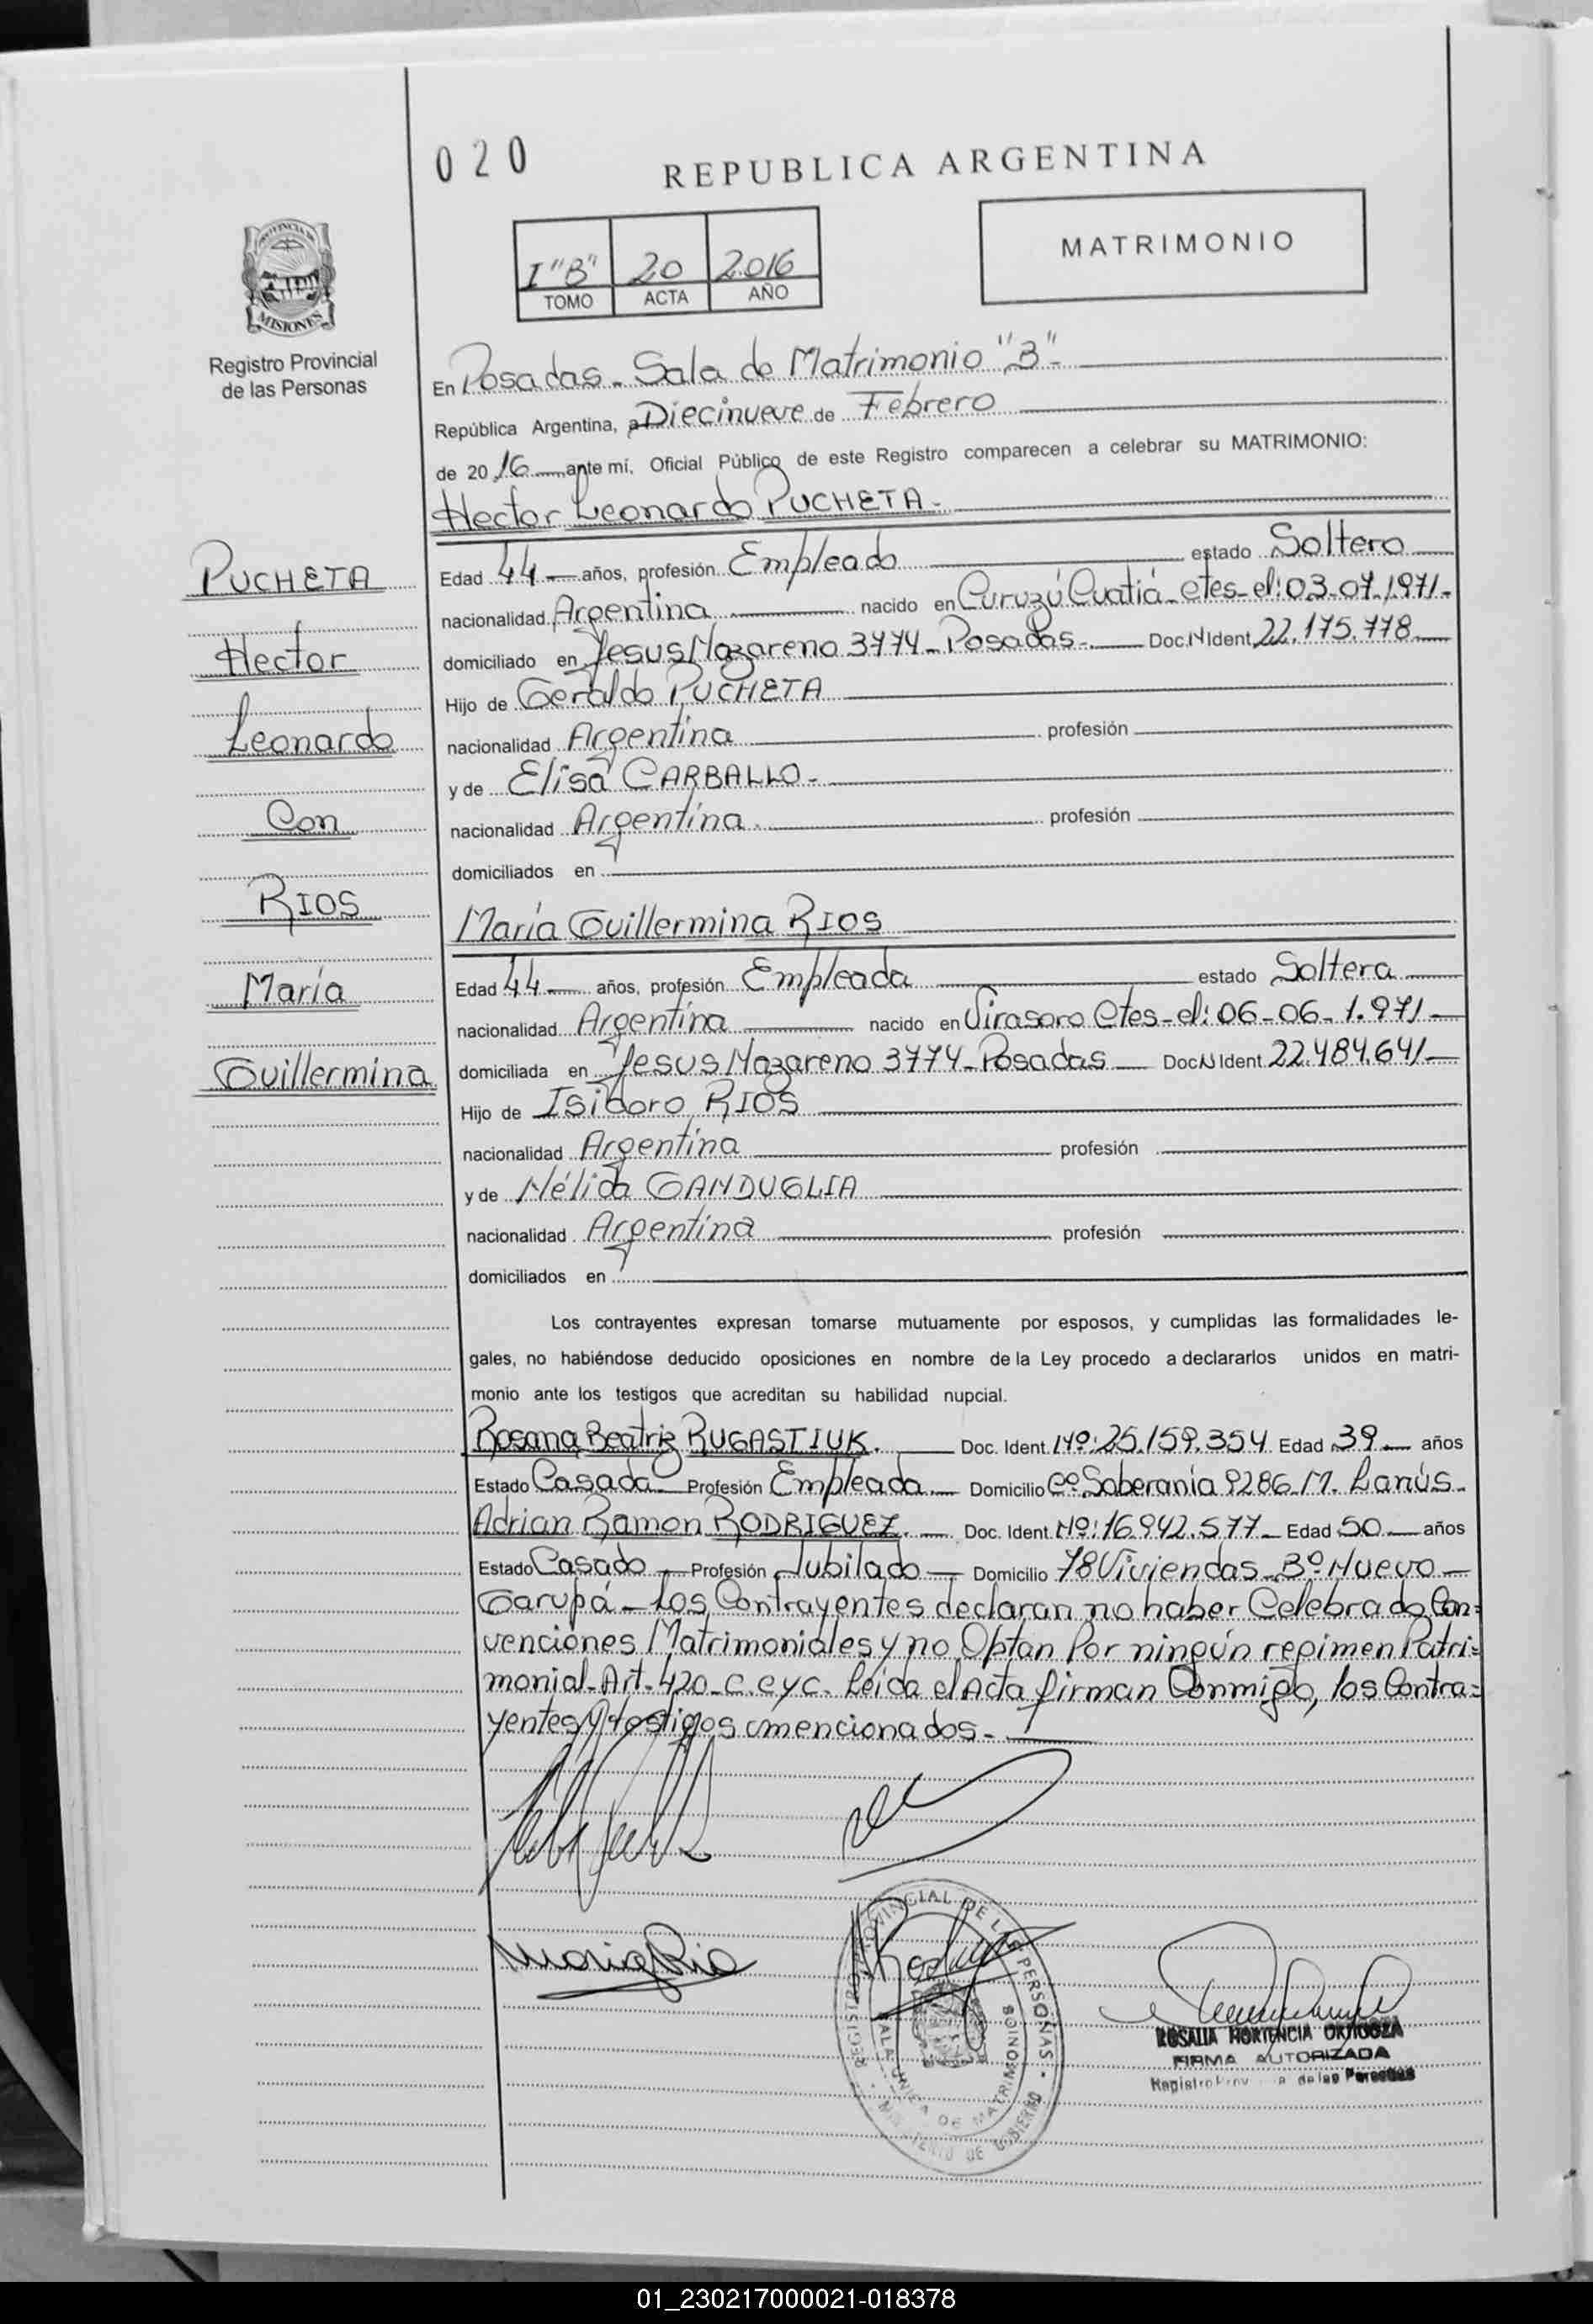 020
REPUBLICA ARGENTINA
PROVINCIA DE
MISIONES
Registro Provincial
de las Personas
I "B" 20 2016
TOMO ACTA AÑO
MATRIMONIO
En Posadas - Sala de Matrimonio "B" -
República Argentina, a Diecinueve de Febrero
de 20 16 ante mí, Oficial Público de este Registro comparecen a celebrar su MATRIMONIO:
Hector Leonardo PUCHETA -
PUCHETA
Hector
Leonardo
Con
RIOS
María
Guillermina
Edad 44 años, profesión Empleado estado Soltero
nacionalidad Argentina nacido en Curuzú Cuatiá - Ctes - el: 03-07-1971 -
domiciliado en Jesus Nazareno 3774 - Posadas - Doc.N Ident 22.175.778
Hijo de Geraldo PUCHETA
nacionalidad Argentina profesión
y de Elisa CARBALLO -
nacionalidad Argentina. profesión
domiciliados en
María Guillermina RIOS
Edad 44 años, profesión Empleada estado Soltera
nacionalidad Argentina nacido en Virasoro Ctes - el: 06-06-1.971 -
domiciliada en Jesus Nazareno 3774 - Posadas Doc.N Ident 22.484.641
Hijo de Isidoro RIOS
nacionalidad Argentina profesión
y de Nélida GANDUGLIA
nacionalidad Argentina profesión
domiciliados en
Los contrayentes expresan tomarse mutuamente por esposos, y cumplidas las formalidades le-
gales, no habiéndose deducido oposiciones en nombre de la Ley procedo a declararlos unidos en matri-
monio ante los testigos que acreditan su habilidad nupcial.
Rosana Beatriz RUGASTIUK. Doc. Ident. Nº: 25.159.354 Edad 39 años
Estado Casada Profesión Empleada Domicilio Cº Soberanía 9286 - M. Lanús -
Adrian Ramon RODRIGUEZ. Doc. Ident. Nº: 16.942.577 Edad 50 años
Estado Casado Profesión Jubilado Domicilio 78 Viviendas - Bº Nuevo -
Garupá - Los Contrayentes declaran no haber Celebrado Con=
venciones Matrimoniales y no Optan Por ningún regimen Patri=
monial - Art - 420 - C. C y C. Leída el Acta firman Conmigo, los Contra=
yentes y testigos mencionados -
REGISTRO PROVINCIAL DE LAS PERSONAS
SALA UNICA DE MATRIMONIOS
MINISTERIO DE GOBIERNO
ROSALIA HORTENCIA
FIRMA AUTORIZADA
de las Personas
01_230217000021-018378